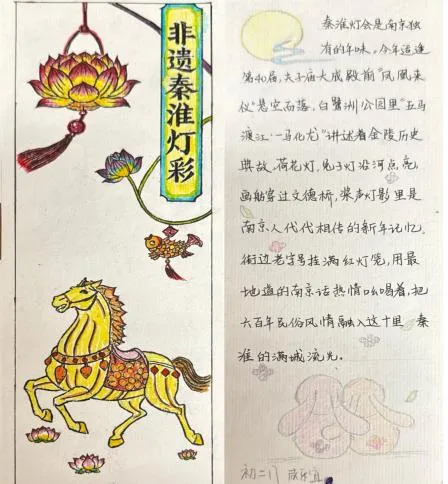 非遗秦淮灯彩
秦淮灯会是南京独
有的年味。今年适逢
第40届,夫子庙大成殿前“凤凰来
仪”悬空而落,白鹭洲公园里“五马
渡江·一马化龙”讲述着金陵历史
典故。荷花灯,兔子灯沿河点亮,
画舫穿过文德桥,桨声灯影里是
南京人代代相传的新年记忆。
街边老字号挂满红灯笼,用最
地道的南京话热情吆喝着,把
六百年民俗风情融入这十里秦
淮的满城流光。
初二